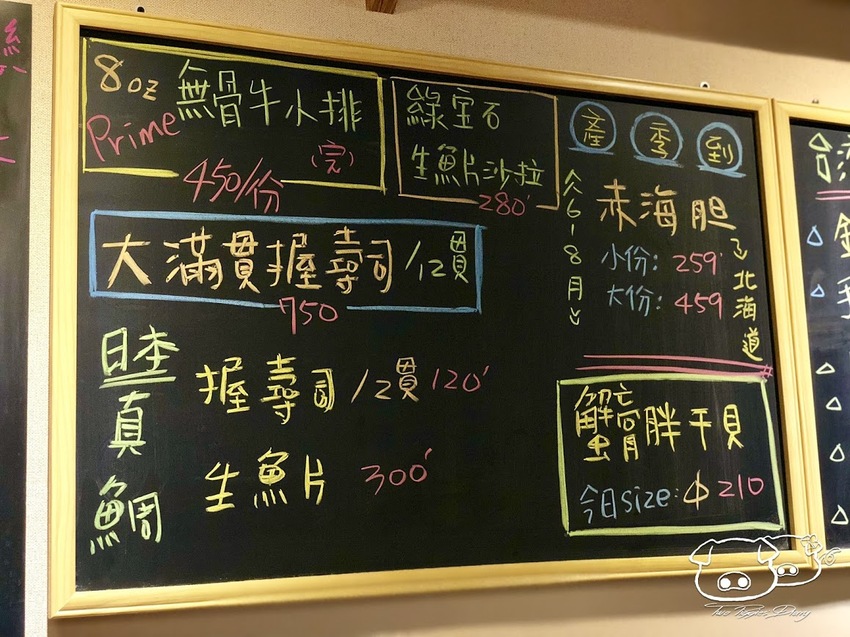 8oz 無骨牛小排
Prime
(完)
450/份
綠宝石
生魚片沙拉
280'
產季到
赤海胆
小份: 259'
大份: 459
6-8月
北海道
大滿貫握壽司/12貫
750
日本真鯛
握壽司/2貫 120'
生魚片 300'
蟹膏胖干貝
今日size: 中 210
Two Piggies Diary